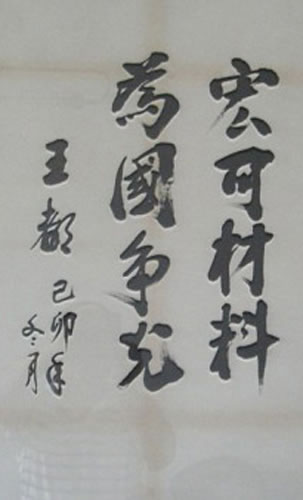 宏可材料
為國争光
王都
己卯年
冬月